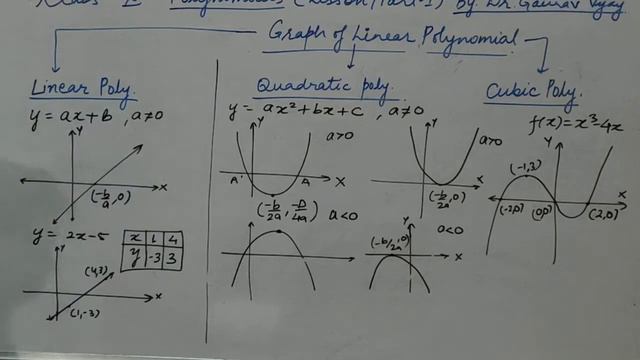 Polynomials (Lesson/Part-1) by Dr. Gaurav Vijay
Graph of Linear Polynomial
Linear Poly.
y = ax+b , a≠0
Y
X
(-b/a, 0)
y = 2x-5
x 1 4
y -3 3
Y
(4,3)
X
(1,-3)
Quadratic poly.
y = ax²+bx+c , a≠0
Y
a>0
A' A X
(-b/2a, -D/4a)
a<0
Y
a>0
X
(-b/2a, 0)
Y
a<0
(-b/2a, 0)
X
Cubic Poly.
f(x)=x³-4x
Y
(-1,3)
X
(-2,0) (0,0) (2,0)